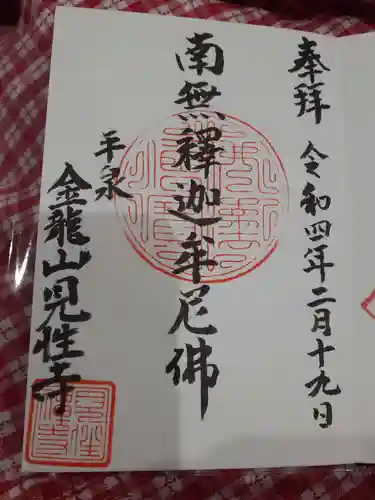 奉拜
令和四年二月十九日
南無釋迦牟尼佛
平泉
金龍山見性寺